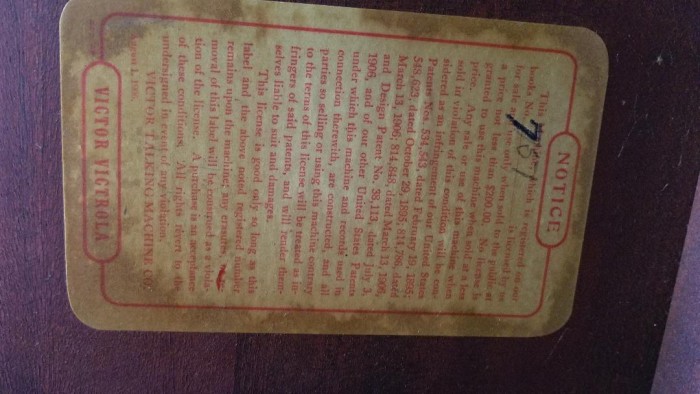 NOTICE
This which is registered on our
books No. 787 is licensed by us
for sale and use only when sold to the public at
a price not less than $200.00. No license is
granted to use this machine when sold at a less
price. Any sale or use of this machine when
sold in violation of this condition will be con-
sidered as an infringement of our United States
Patents Nos. 534,543, dated February 19, 1895;
548,623, dated October 29, 1895; 814,786, dated
March 13, 1906; 814,848, dated March 13, 1906,
and Design Patent No. 38,113, dated July 3,
1906, and of our other United States Patents
under which this machine and records used in
connection therewith, are constructed and all
parties so selling or using this machine contrary
to the terms of this license will be treated as in-
fringers of said patents, and will render them-
selves liable to suit and damages.
This license is good only so long as this
label and the above noted registered number
remains upon the machine; any erasure,
moval of this label will be construed as a viola-
tion of the license. A purchase is an acceptance
of these conditions. All rights revert to the
undersigned in event of any violation.
VICTOR TALKING MACHINE CO.
August 1,
VICTOR VICTROLA